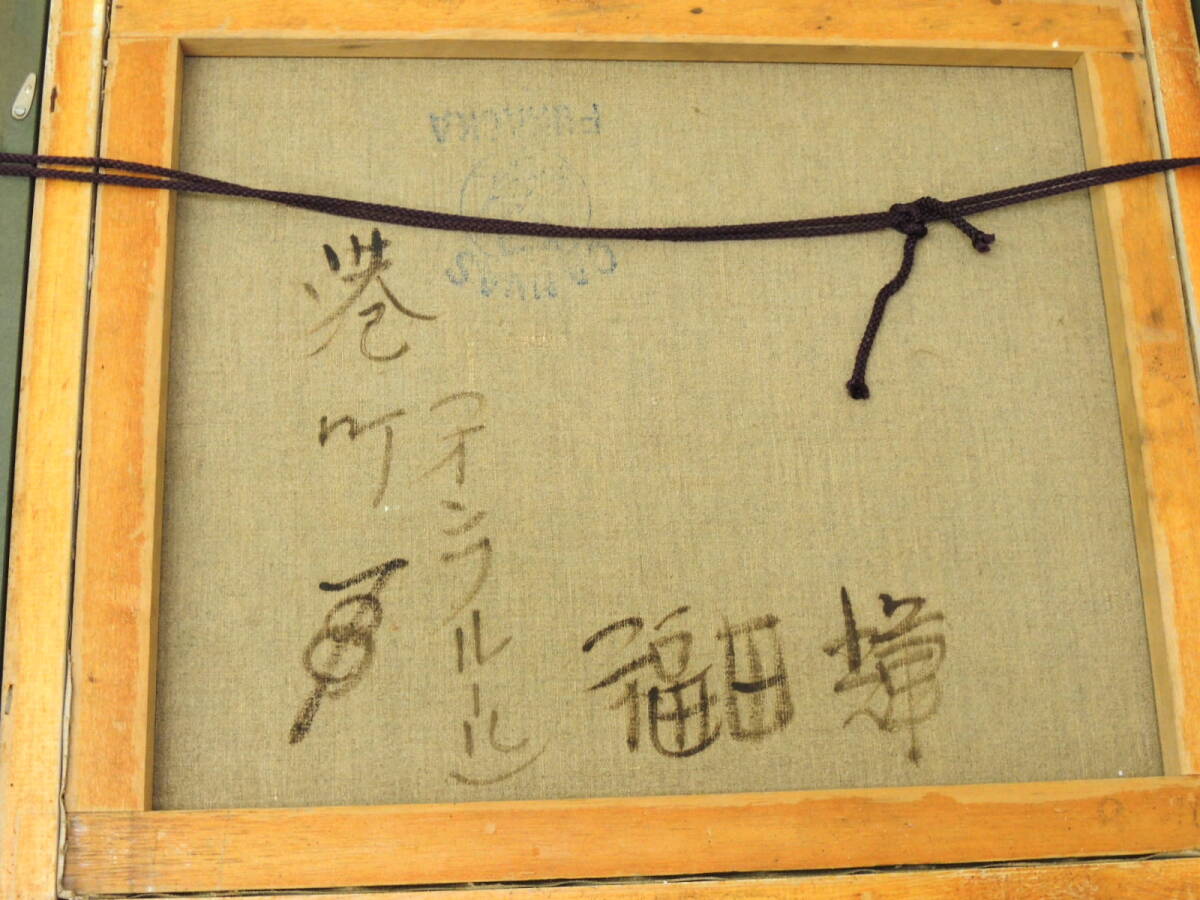 FUNAOKA
CANVAS
港町
(オンフルール)
福田